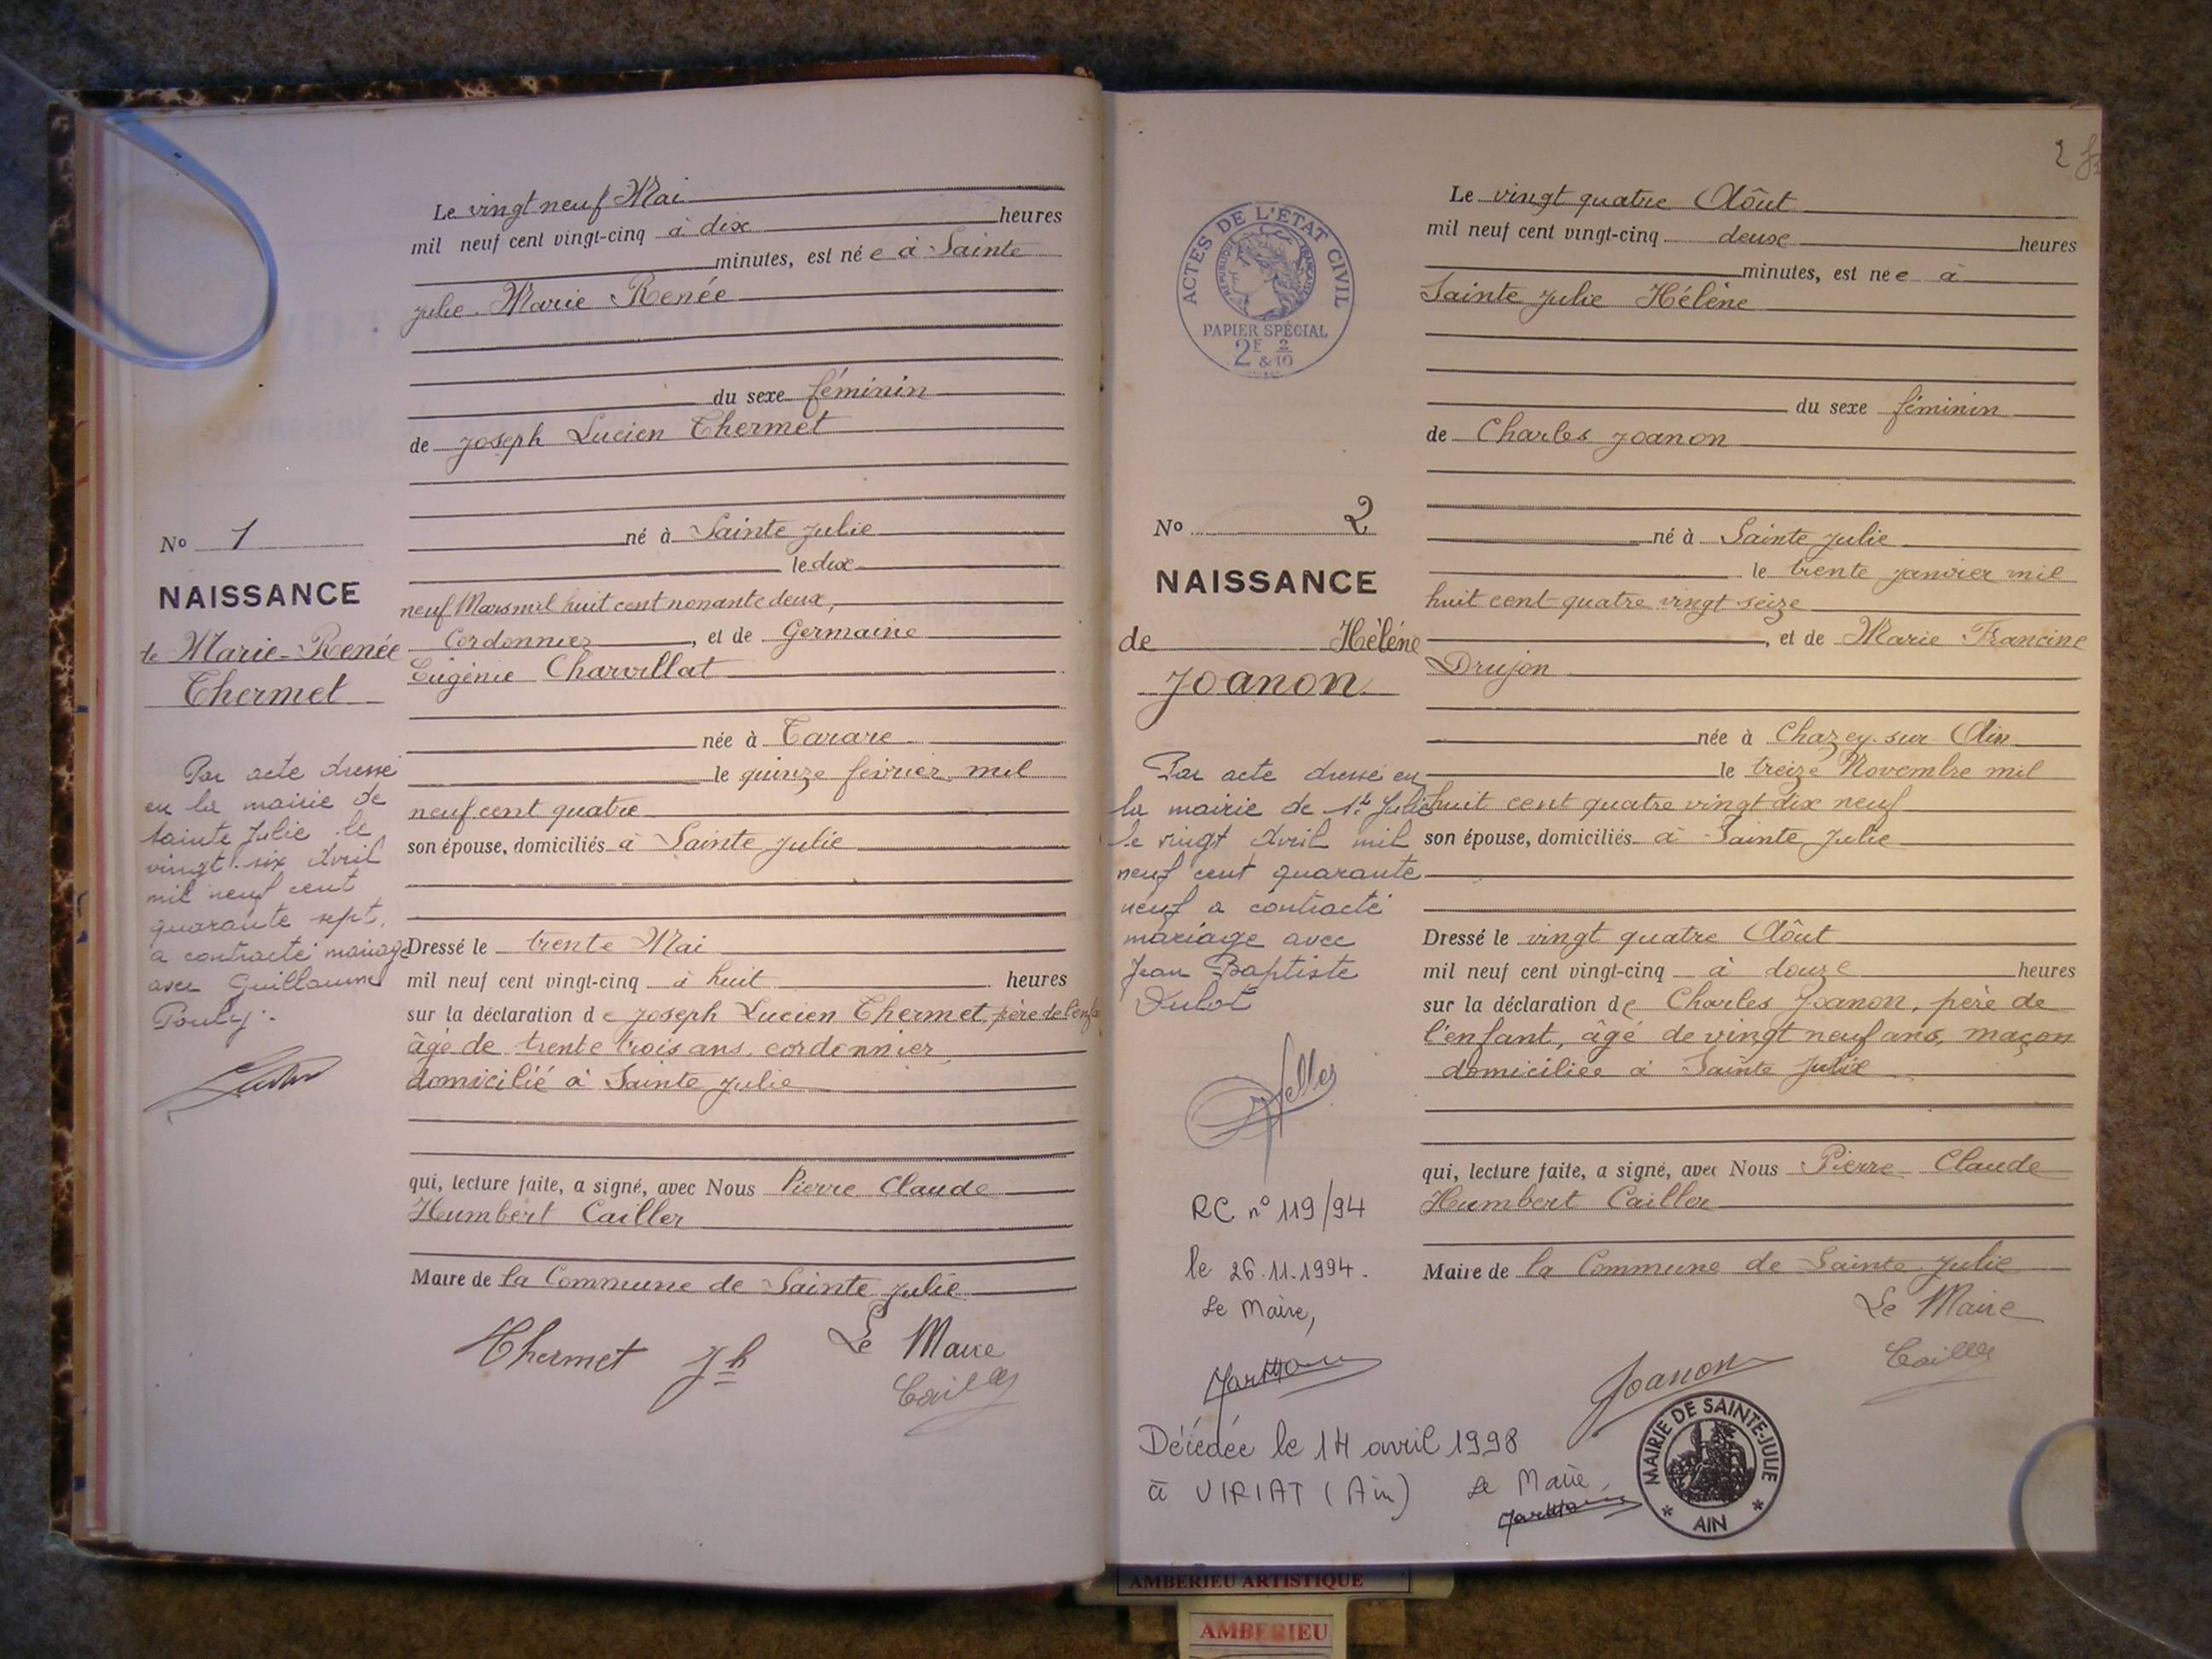 Le vingt neuf Mai
mil neuf cent vingt-cinq à dix heures
minutes, est né e à Sainte
Julie Marie Renée
du sexe féminin
de Joseph Lucien Thermet
né à Sainte Julie
le dix
neuf Mars mil huit cent nonante deux,
Cordonnier, et de Germaine
Eugénie Charvillat
née à Tarare
le quinze février mil
neuf cent quatre
son épouse, domiciliés à Sainte Julie
Dressé le trente Mai
mil neuf cent vingt-cinq à huit heures
sur la déclaration de Joseph Lucien Thermet, père de l'enfa
âgé de trente trois ans, cordonnier
domicilié à Sainte Julie
qui, lecture faite, a signé, avec Nous Pierre Claude
Humbert Cailler
Maire de la Commune de Sainte Julie
Thermet Jh
Le Maire
Cailler
No 1
NAISSANCE
de Marie-Renée
Thermet
Par acte dressé
en la mairie de
Sainte Julie le
vingt six Avril
mil neuf cent
quarante sept,
a contracté mariage
avec Guillaume
Pouly.
2
ACTES DE L'ETAT CIVIL
REPUBLIQUE FRANCAISE
PAPIER SPÉCIAL
2F & 2/10
No 2
NAISSANCE
de Hélène
Joanon
Par acte dressé en
la mairie de Ste Julie
le vingt Avril mil
neuf cent quarante
neuf a contracté
mariage avec
Jean Baptiste
Dulot
RC n° 119/94
le 26.11.1994.
Le Maire,
Décédée le 14 avril 1998
à VIRIAT (Ain)
Le Maire,
Le vingt quatre Aôut
mil neuf cent vingt-cinq deux heures
minutes, est née à
Sainte Julie Hélène
du sexe féminin
de Charles Joanon
né à Sainte Julie
le trente janvier mil
huit cent quatre vingt seize
, et de Marie Francine
Drujon
née à Chazey-sur-Ain
le treize Novembre mil
huit cent quatre vingt dix neuf
son épouse, domiciliés à Sainte Julie
Dressé le vingt quatre Aôut
mil neuf cent vingt-cinq à douze heures
sur la déclaration de Charles Joanon, père de
l'enfant, âgé de vingt neuf ans, maçon
domiciliée à Sainte Julie
qui, lecture faite, a signé, avec Nous Pierre Claude
Humbert Cailler
Maire de la Commune de Sainte Julie
Le Maire
Cailler
Joanon
MAIRIE DE SAINTE-JULIE
* AIN *
AMBERIEU ARTISTIQUE
AMBERIEU